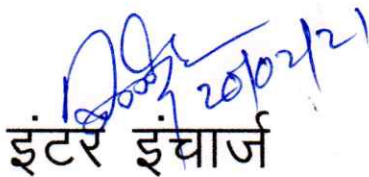 20/02/21
इंटर इंचार्ज